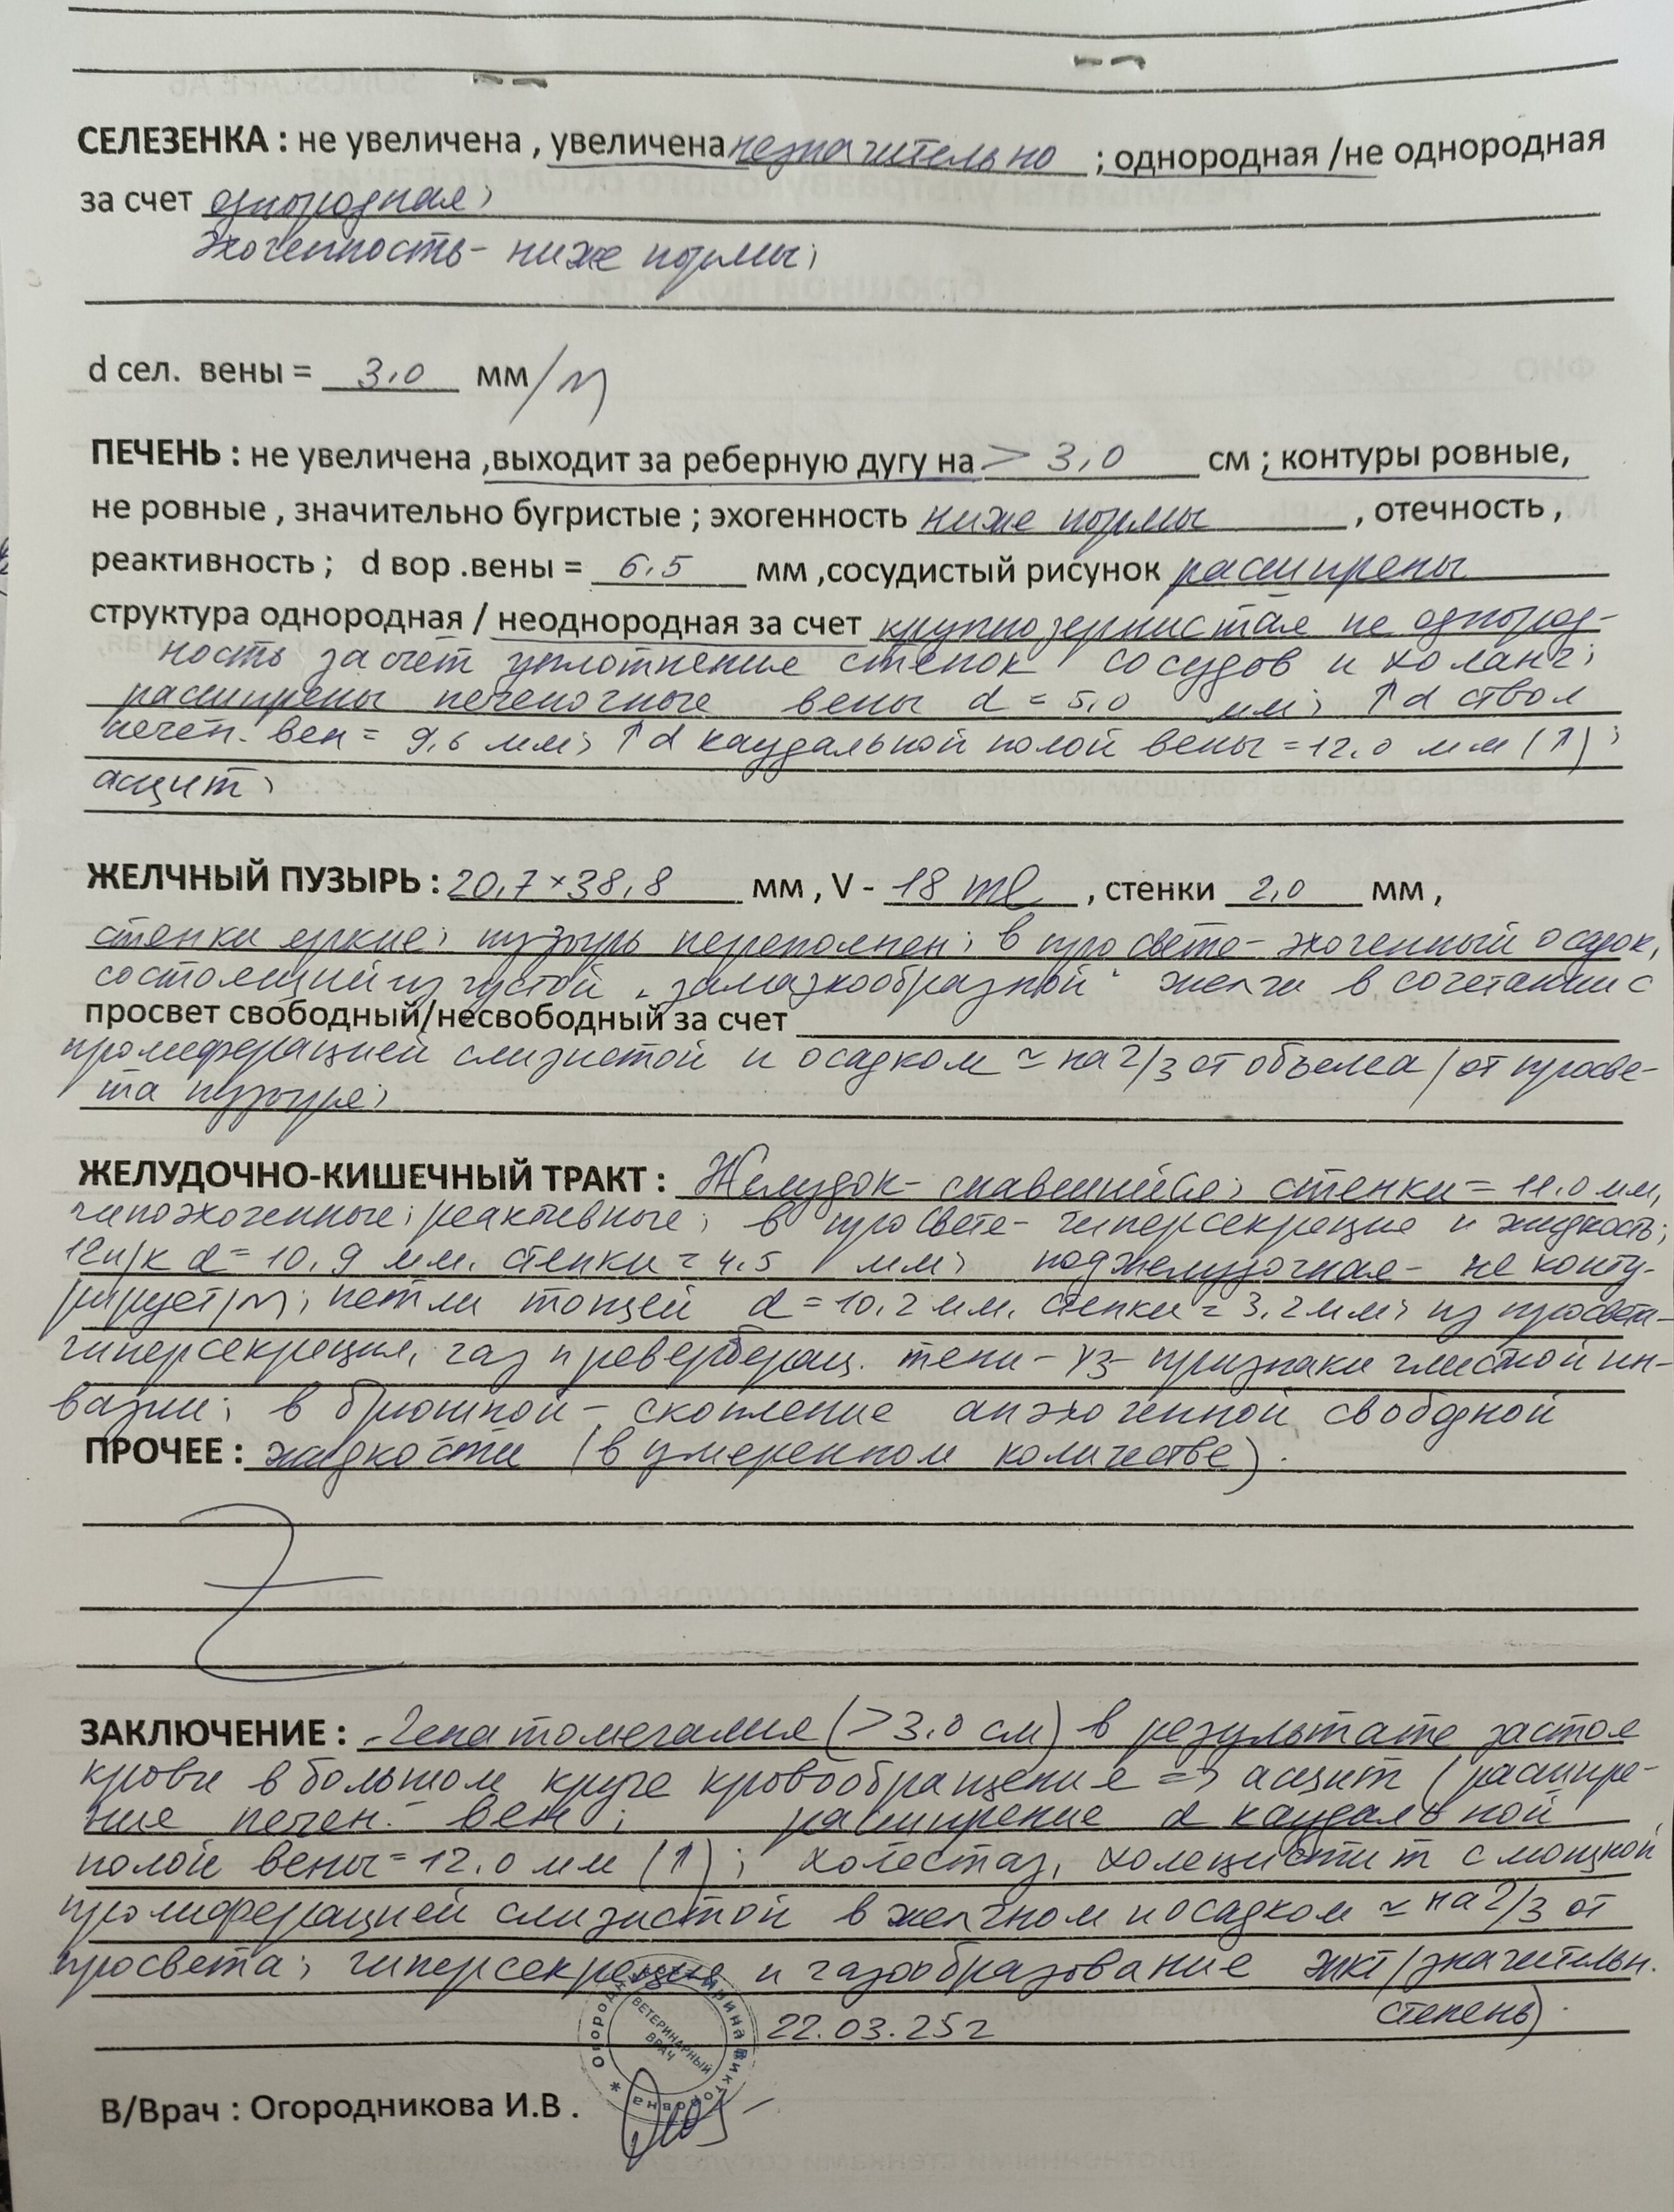 СЕЛЕЗЕНКА : не увеличена , увеличена незначительно ; однородная /не однородная
за счет однородная;
Эхогенность - ниже нормы;
d сел. вены = 3,0 мм/N
ПЕЧЕНЬ : не увеличена ,выходит за реберную дугу на > 3,0 см ; контуры ровные,
не ровные , значительно бугристые ; эхогенность ниже нормы , отечность ,
реактивность ; d вор .вены = 6,5 мм ,сосудистый рисунок расширены
структура однородная / неоднородная за счет крупнозернистая не однород-
ность за счет уплотнения стенок сосудов и холанг;
расширены печеночные вены d = 5,0 мм; ↑d ствол
печен. вен = 9,6 мм; ↑d каудальной полой вены = 12,0 мм (↑);
асцит;
ЖЕЛЧНЫЙ ПУЗЫРЬ : 20,7 × 38,8 мм , V - 18 ml , стенки 2,0 мм ,
стенки яркие; пузырь переполнен; в просвете - эхогенный осадок,
состоящий из густой „замазкообразной“ желчи в сочетании с
просвет свободный/несвободный за счет
пролиферацией слизистой и осадком ≃ на 2/3 от объема / от просве-
та пузыря;
ЖЕЛУДОЧНО-КИШЕЧНЫЙ ТРАКТ : Желудок - спавшийся; стенки = 11,0 мм,
гипоэхогенные; реактивные; в просвете - гиперсекреция и жидкость;
12п/к d = 10,9 мм. стенки = 4,5 мм; поджелудочная - не конту-
рирует/N; петли тощей d = 10,2 мм. стенки = 3,2 мм; из просвета -
гиперсекреция, газ и ревербрац. тени - УЗ - признаки глистной ин-
вазии; в брюшной - скопление анэхогенной свободной
ПРОЧЕЕ : жидкости (в умеренном количестве).
ЗАКЛЮЧЕНИЕ : - Гепатомегалия (>3,0 см) в результате застоя
крови в большом круге кровообращения => асцит (расшире-
ние печен. вен; расширение d каудальной
полой вены = 12,0 мм (↑); холестаз, холецистит с мощной
пролиферацией слизистой в желчном и осадком ≃ на 2/3 от
просвета; гиперсекреция и газообразование ЖКТ/значительн.
степень).
22.03.25г
Огородникова Ирина Викторовна *
ВЕТЕРИНАРНЫЙ
ВРАЧ
В/Врач : Огородникова И.В .